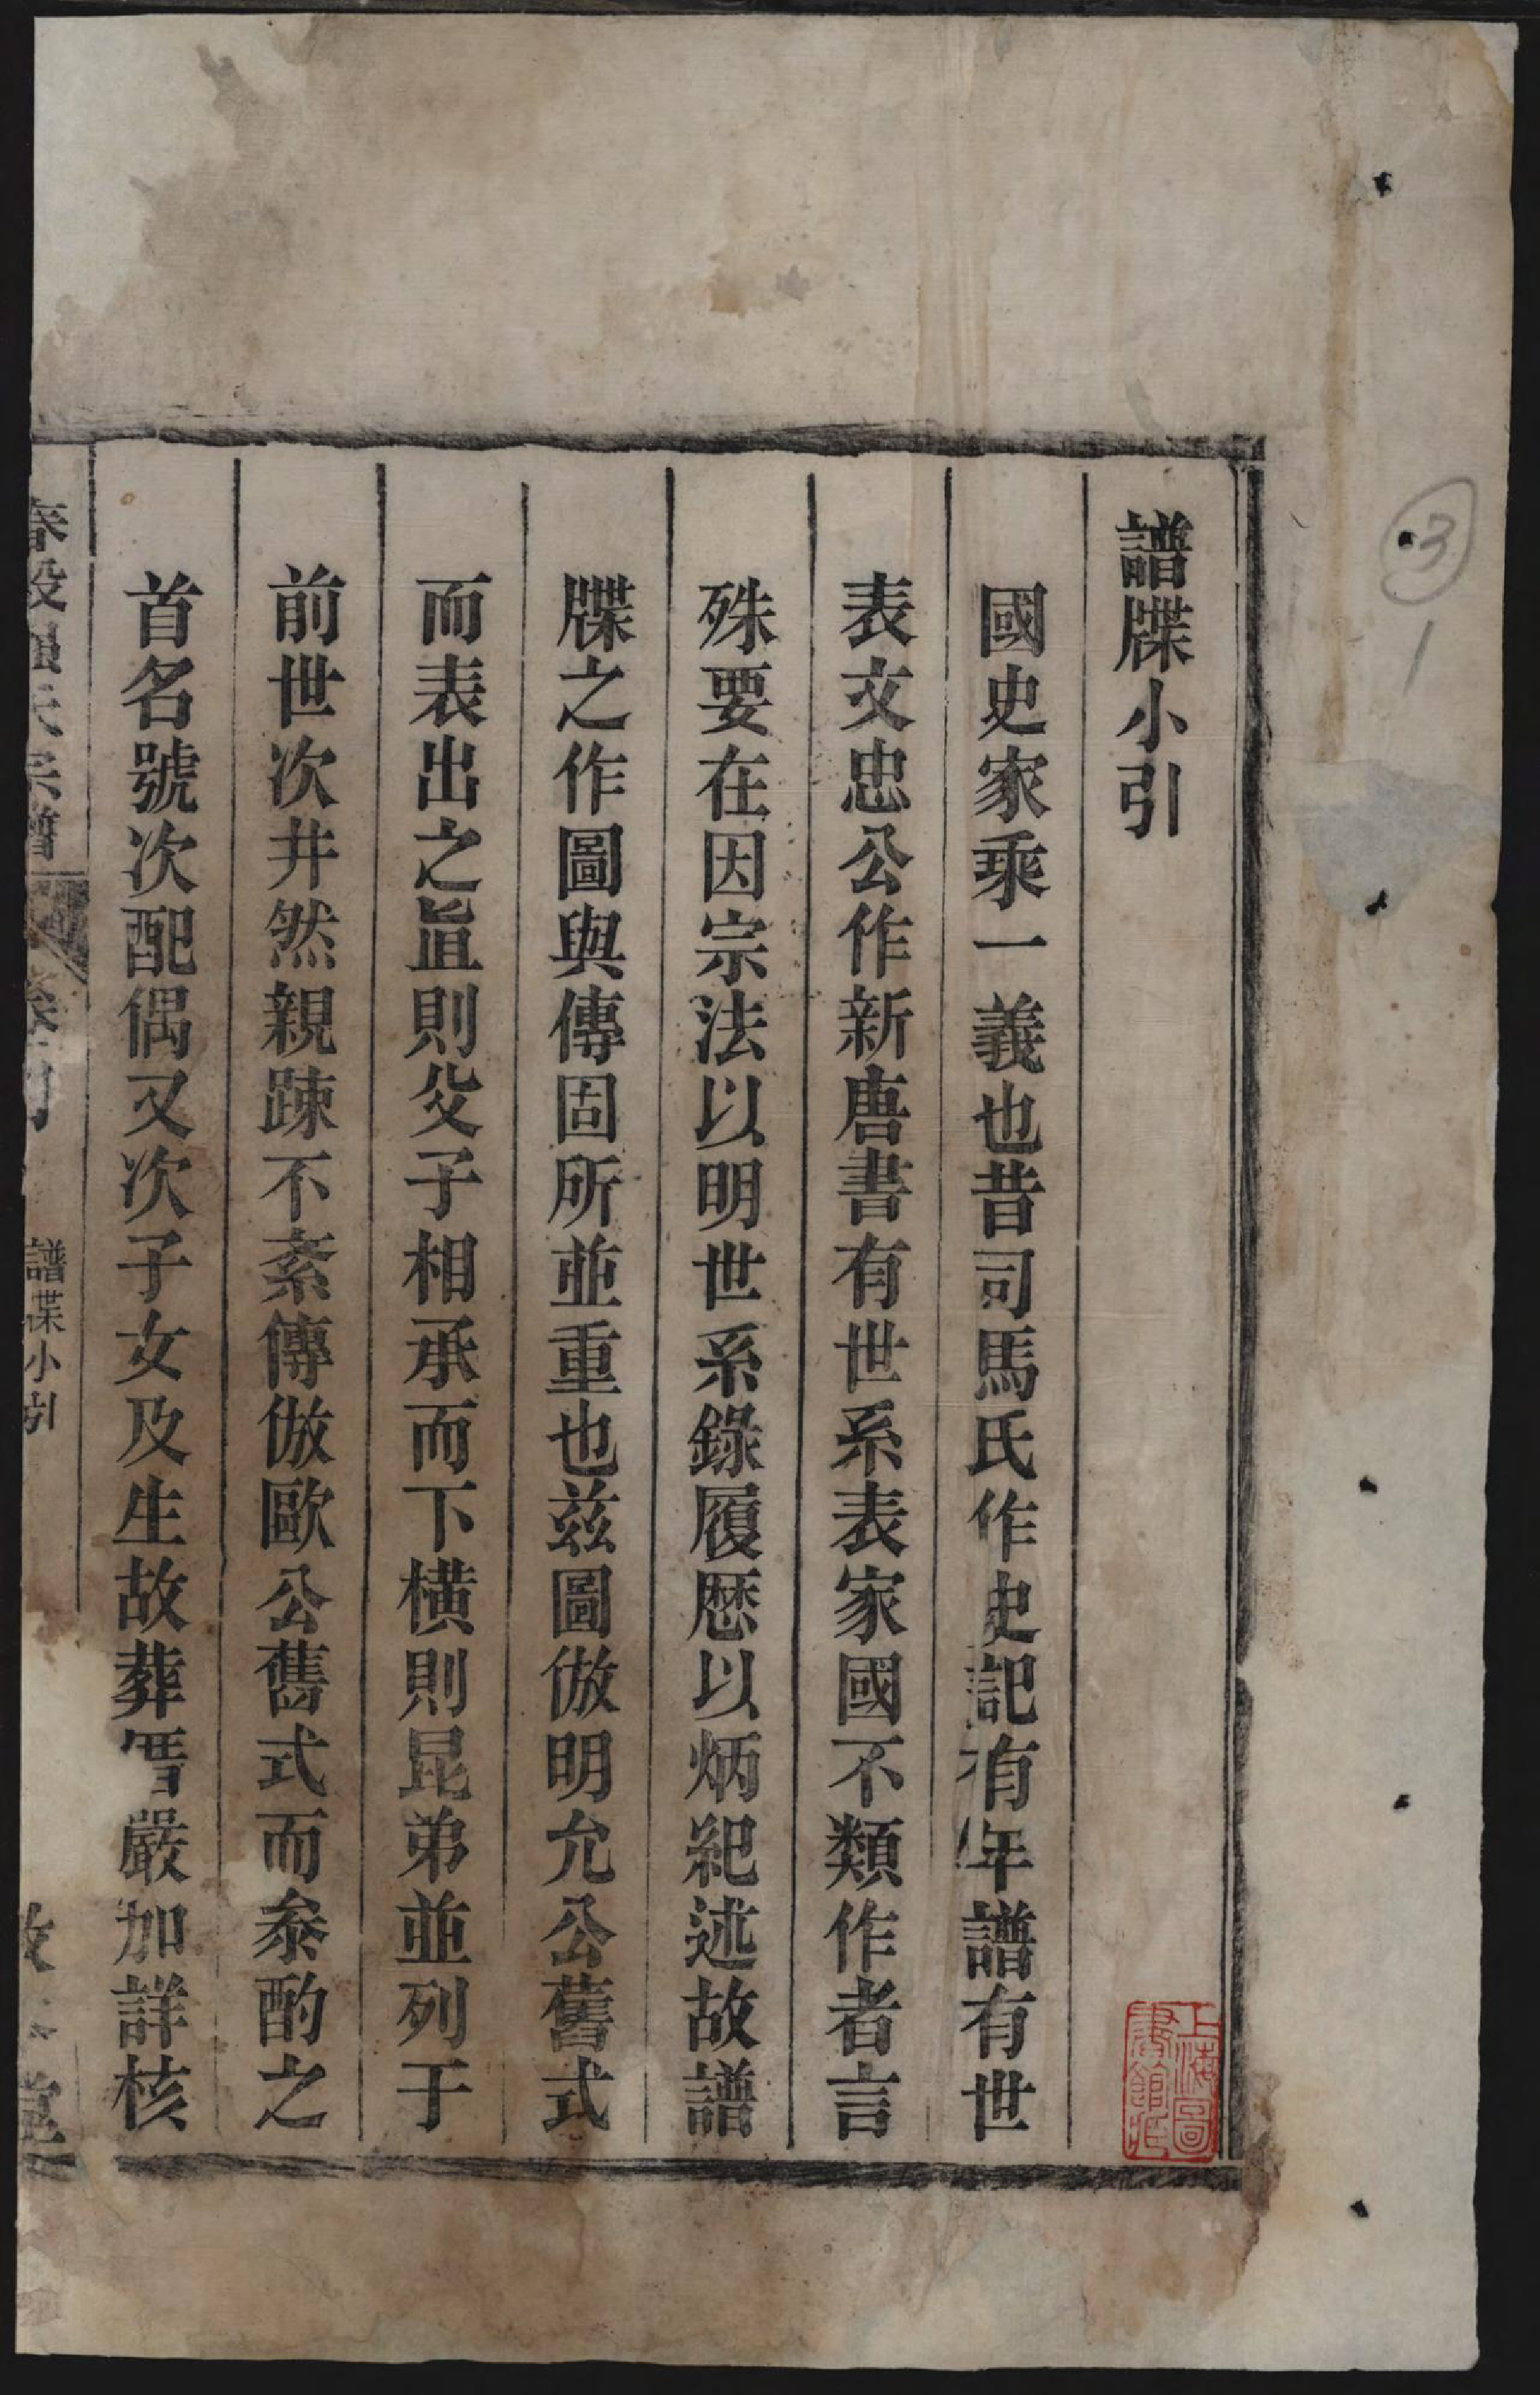 譜牒小引
國史家乘一義也昔司馬氏作史記有年譜有世
表文忠公作新唐書有世系表家國不類作者言
殊要在因宗法以明世系錄履歷以炳紀述故譜
牒之作圖與傳固所並重也兹圖倣明允公舊式
而表出之旨則父子相承而下橫則昆弟並列于
前世次井然親踈不紊傳倣歐公舊式而叅酌之
首名號次配偶又次子女及生故葬嚴加詳核
春穀氏宗譜
譜牒小引
堂
上海圖書館藏
3
1